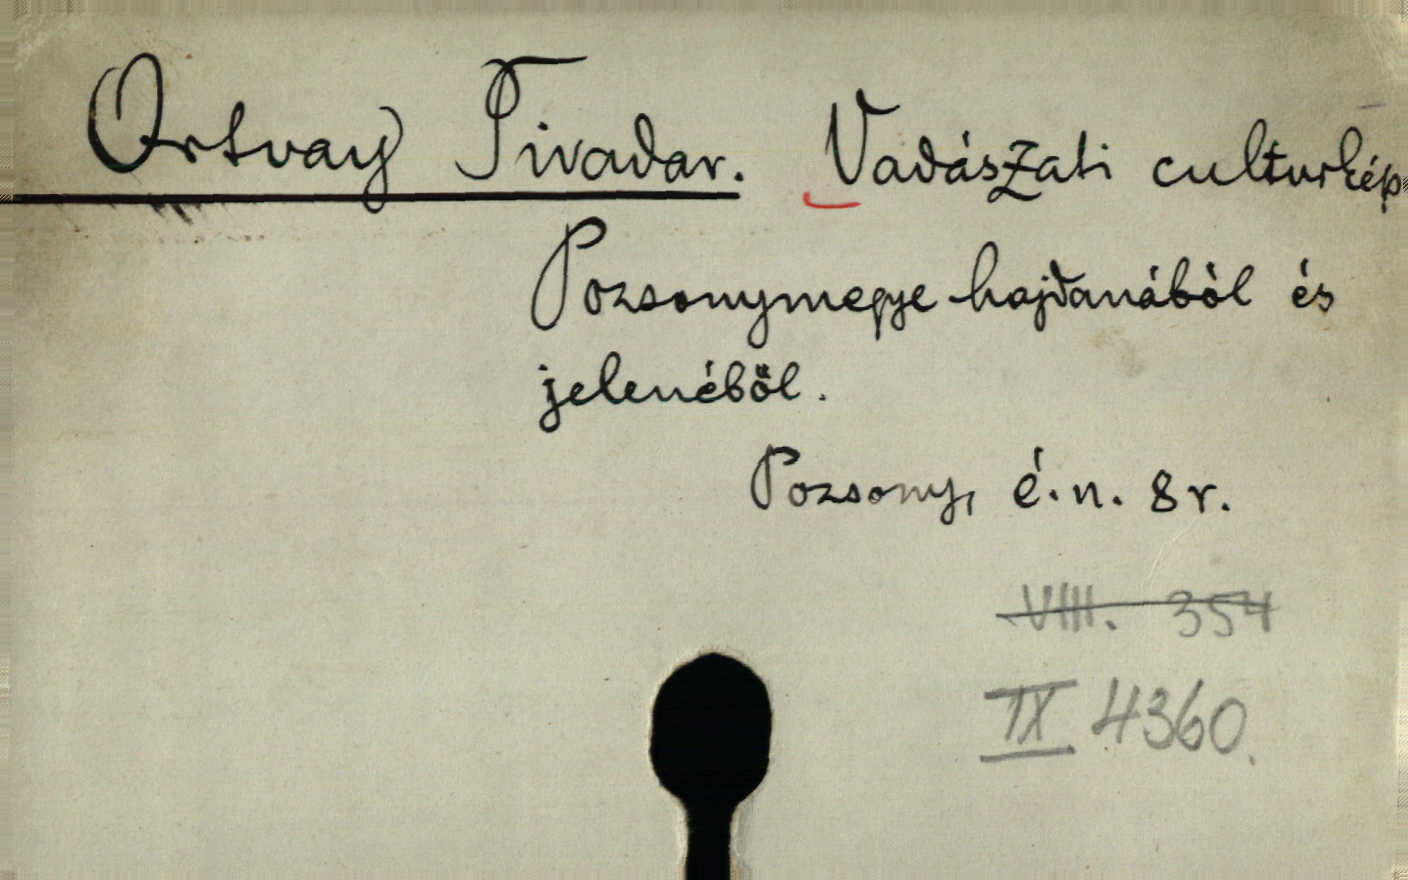 Ortvay Tivadar. Vadászati culturkép
Pozsonymegye hajdanából és
jelenéből.
Pozsony, é.n. 8r.
VIII. 354
IX 4360.